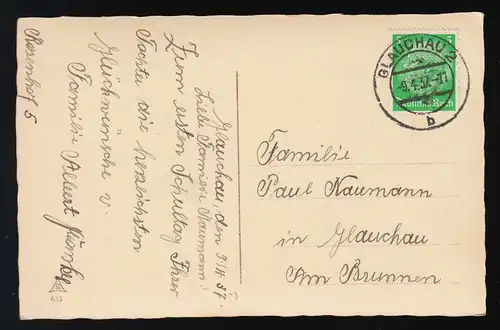 Glauchau, den 9/4. 37.
Liebe Familie Naumann!
Zum ersten Schultag Ihrer
Tochter die herzlichsten
Glückwünsche v.
Familie Albert
Rosenhof 5
GLAUCHAU 2
-9.4.37.-11
b
Deutsches Reich
Familie
Paul Naumann
in Glauchau
Am Brunnen